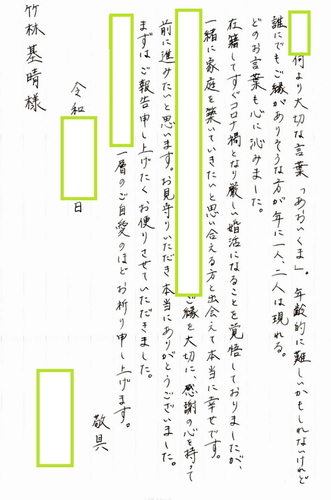 何より大切な言葉「あおいくま」。年齢的に難しいかもしれないけれど
誰にでもご縁がありそうな方が年に一人、二人は現れる。
どのお言葉も心に沁みました。
在籍してすぐコロナ禍となり厳しい婚活になることを覚悟しておりましたが、
一緒に家庭を築いていきたいと思い合える方と出会えて本当に幸せです。
ご縁を大切に、感謝の心を持って
前に進みたいと思います。お見守りいただき本当にありがとうございました。
まずはご報告申し上げたくお便りさせていただきました。
一層のご自愛のほどお祈り申し上げます。
敬具
令和 日
竹林基晴様